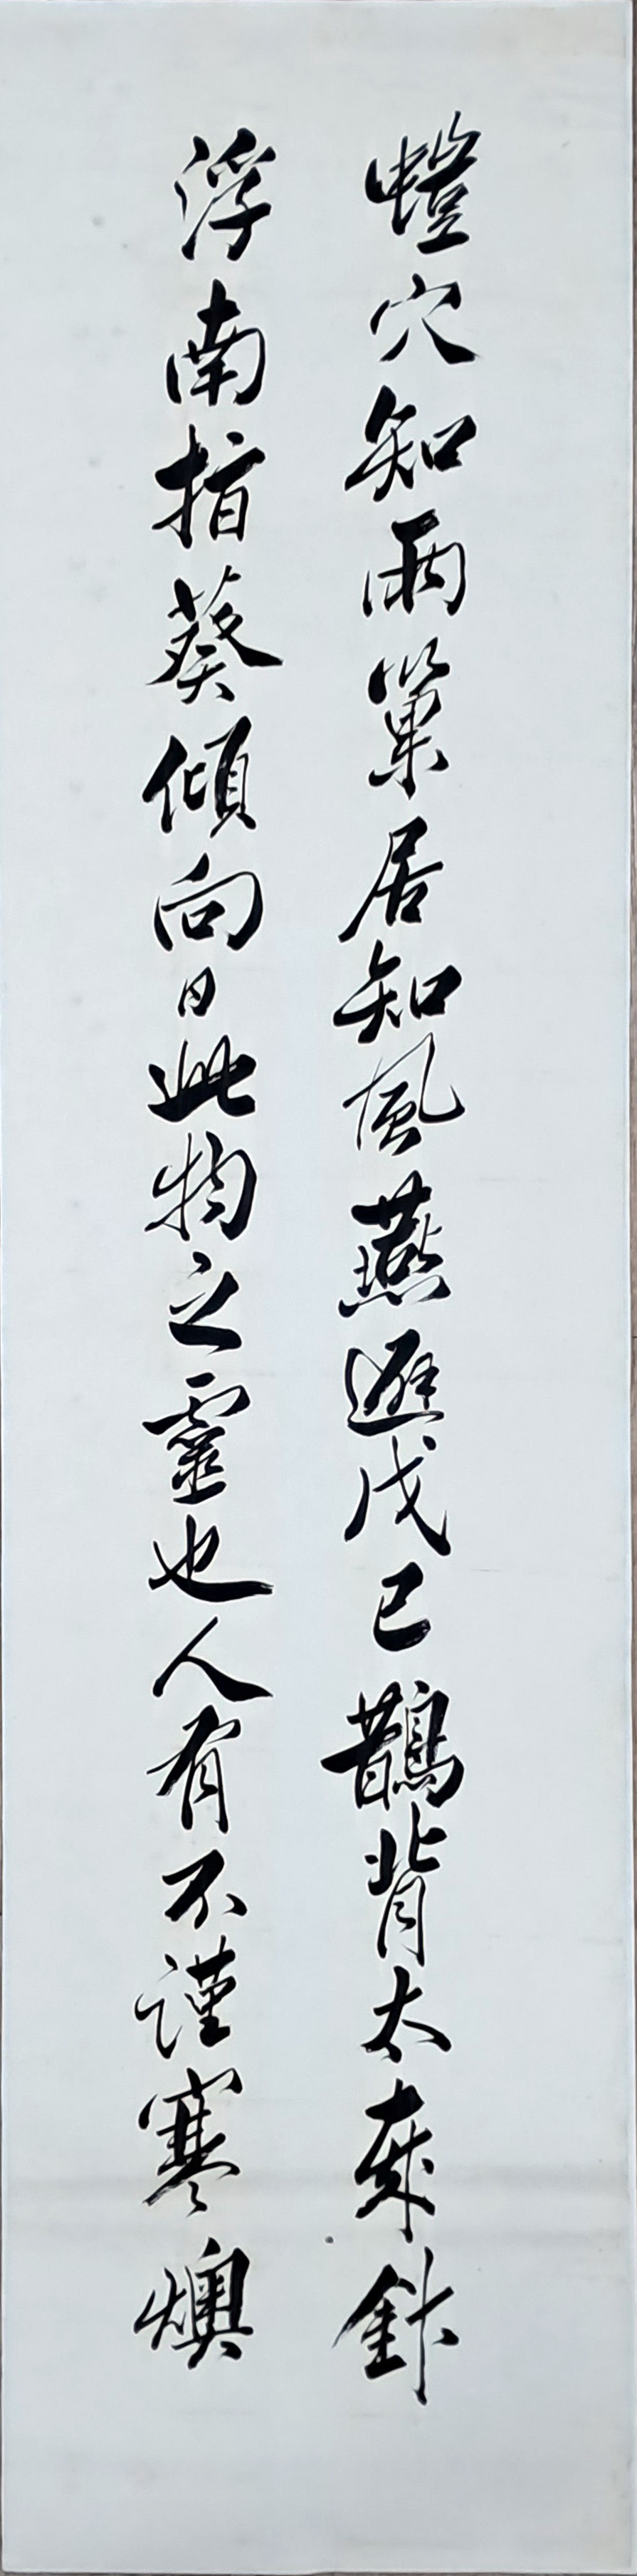 螘穴知雨巢居知風燕避戊己鵲背太歲針
浮南指葵傾向日此物之靈也人有不謹寒燠